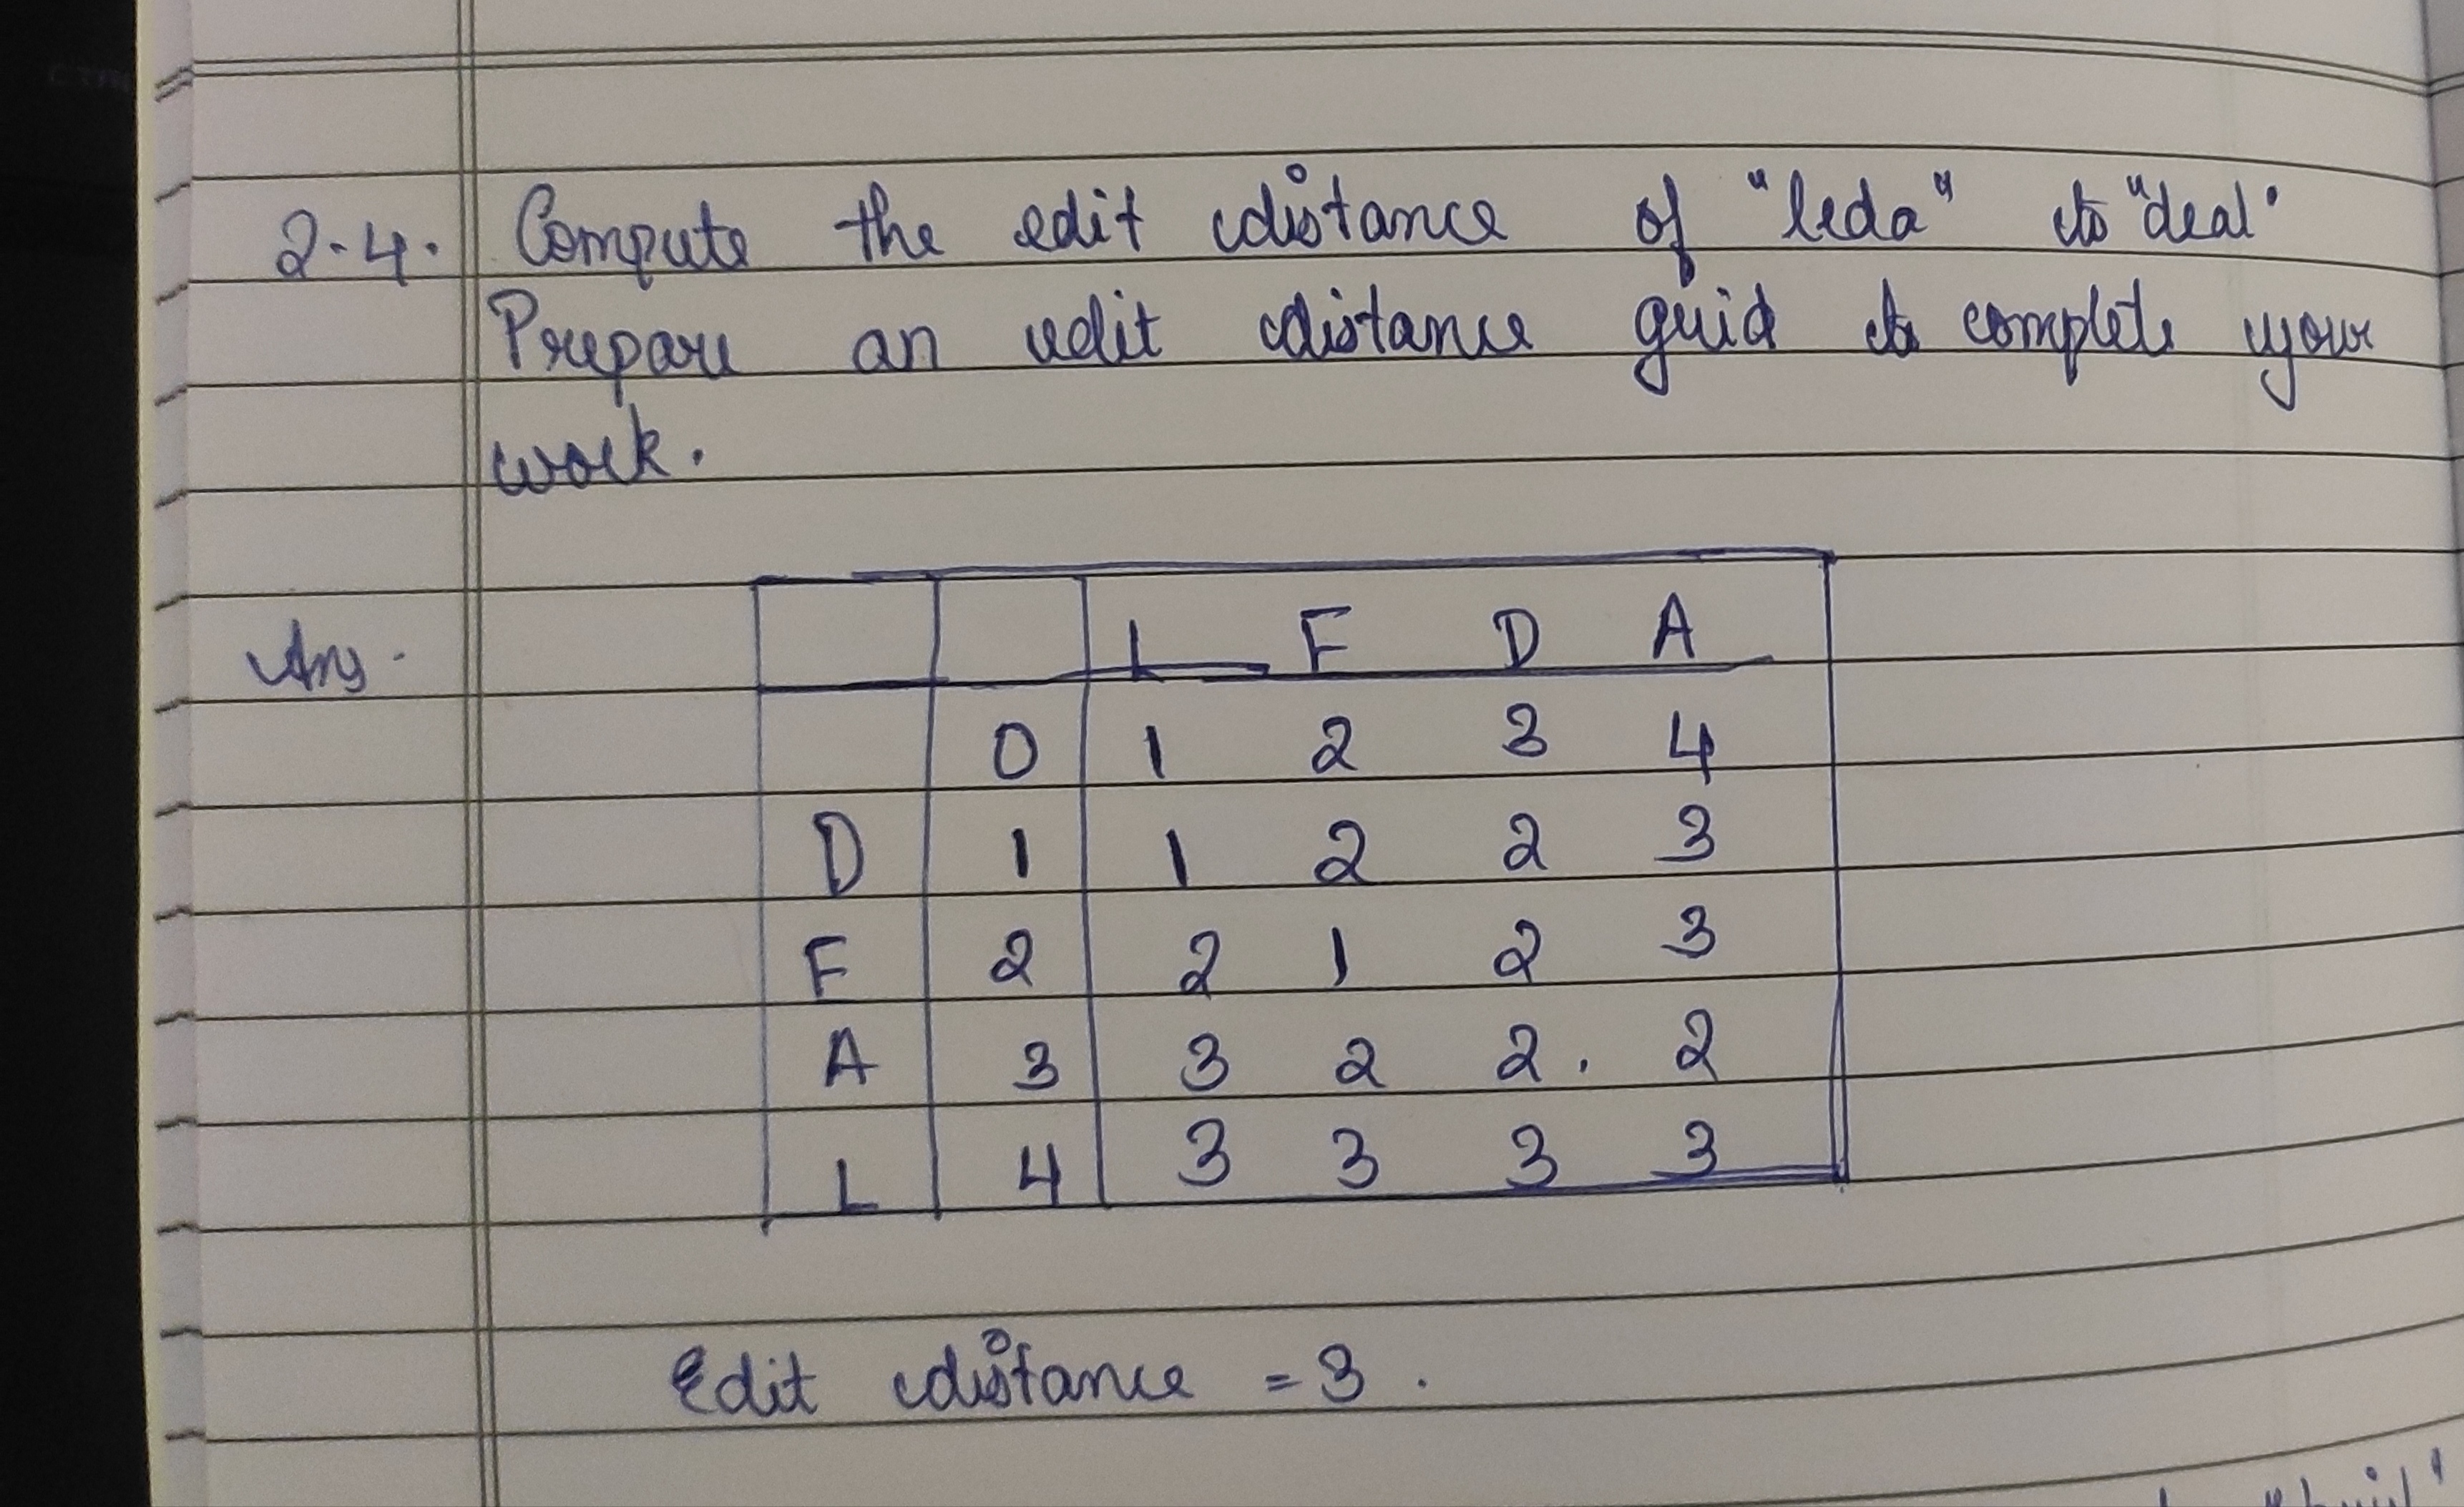 2.4. Compute the edit distance of "leda" to "deal"
Prepare an edit distance guid to complete your
work.
Ans.
L E D A
0 1 2 3 4
D 1 1 2 2 3
E 2 2 1 2 3
A 3 3 2 2. 2
L 4 3 3 3 3
Edit distance = 3.